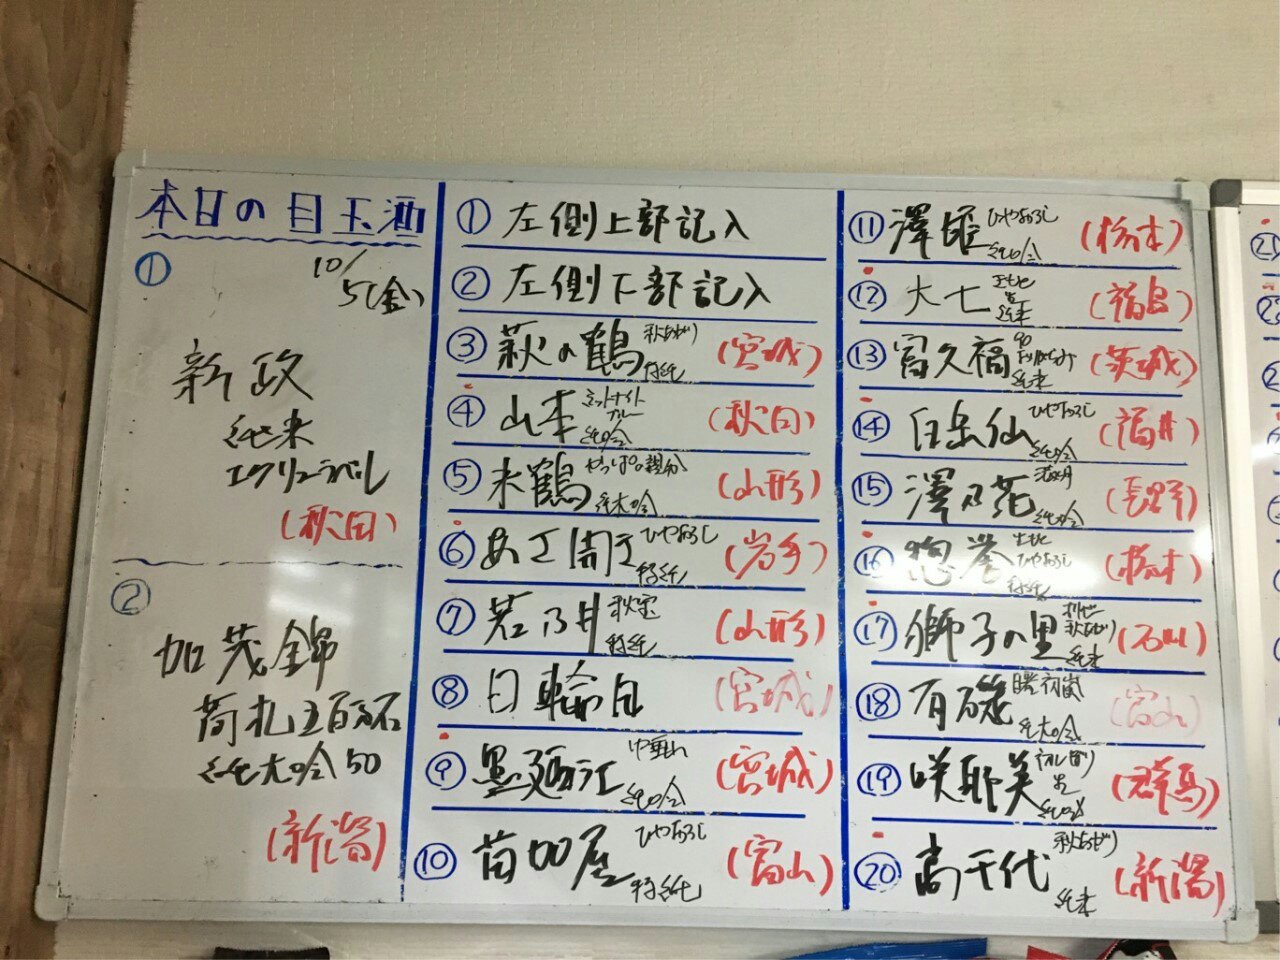 本日の目玉酒
① 10/5(金)
新政
純米
エクリュラベル
(秋田)
②
加茂錦
荷札五百万石
純大吟50
(新潟)
① 左側上部記入
② 左側下部記入
③ 萩の鶴 秋あがり 特純 (宮城)
④ 山本 ミッドナイトブルー 純吟 (秋田)
⑤ 米鶴 やっぱり親分 純大吟 (山形)
⑥ あさ開 ひやおろし 特純 (岩手)
⑦ 若乃井 秋宝 特純 (山形)
⑧ 日輪田 (宮城)
⑨ 墨廼江 中垂れ 純吟 (宮城)
⑩ 苗加屋 ひやおろし 特純 (富山)
⑪ 澤姫 ひやおろし 純吟 (栃木)
⑫ 大七 純米 (福島)
⑬ 富久福 純米 (茨城)
⑭ 白岳仙 ひやおろし 純吟 (福井)
⑮ 澤乃花 純吟 (長野)
⑯ 惣誉 生酛 ひやおろし 特純 (栃木)
⑰ 獅子の里 秋あがり 純米 (石川)
⑱ 有磯 曙 初嵐 純大吟 (富山)
⑲ 咲耶美 純吟 (群馬)
⑳ 高千代 秋あがり 純米 (新潟)